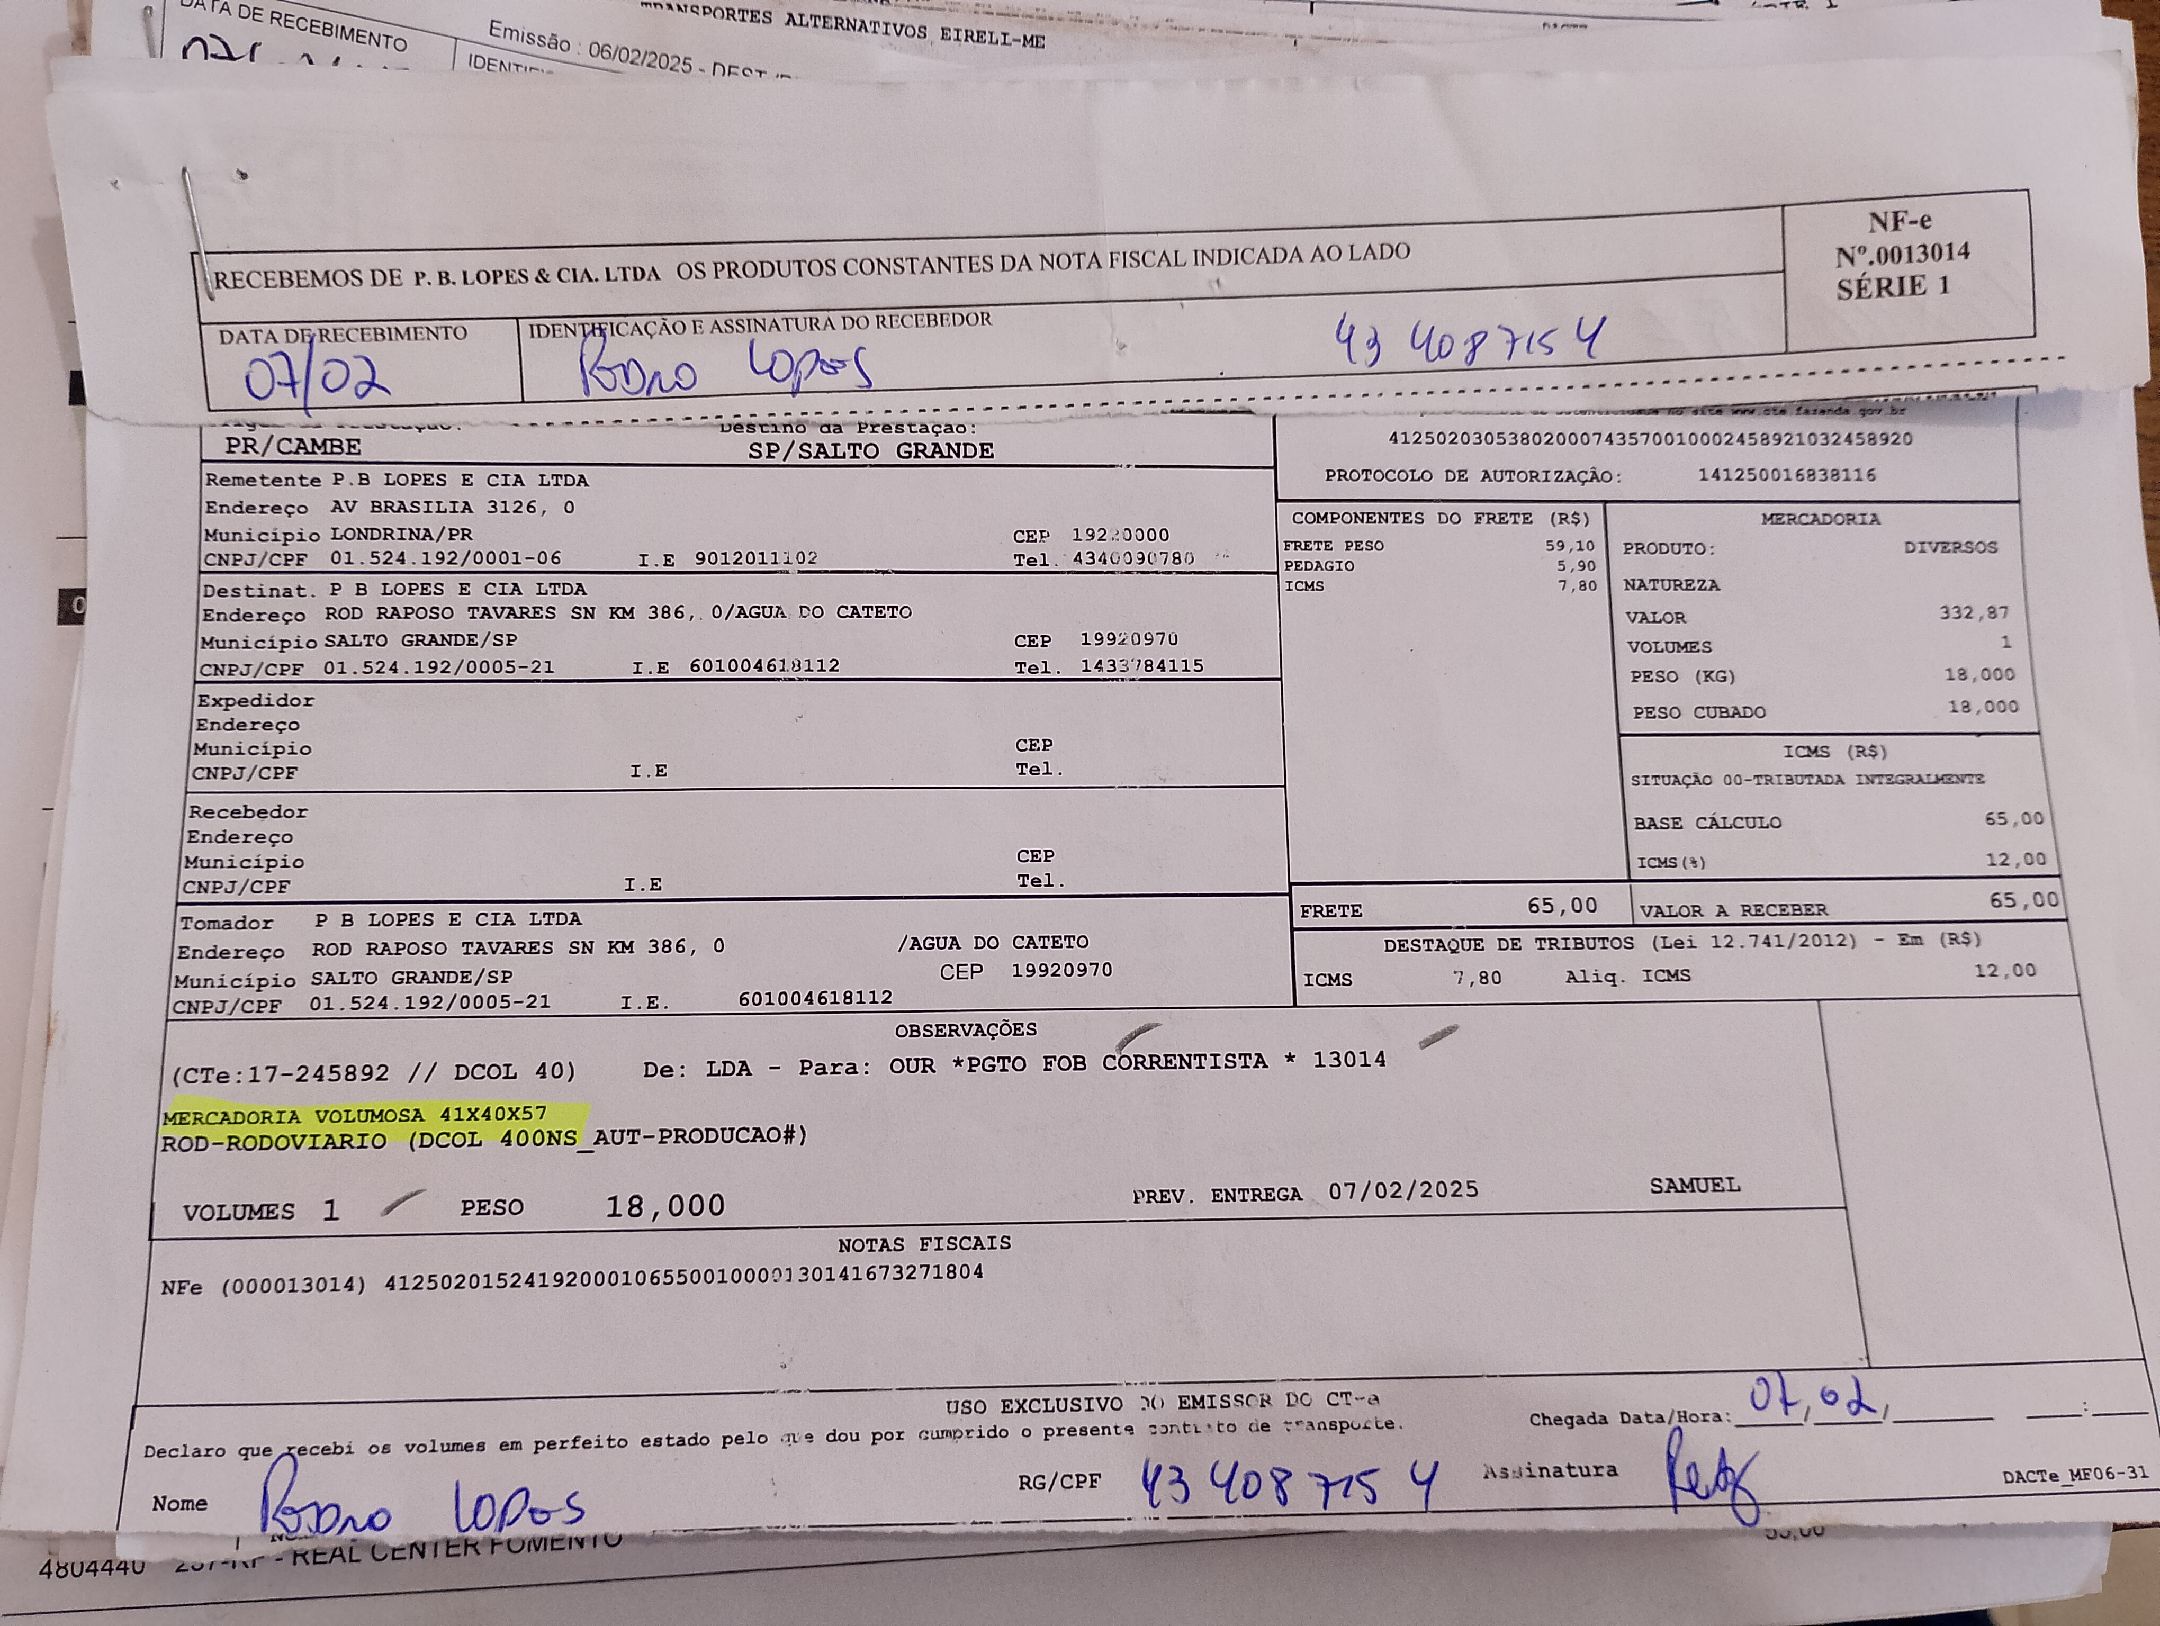 DATA DE RECEBIMENTO
Emissão : 06/02/2025 - DEST
TRANSPORTES ALTERNATIVOS EIRELI-ME
RECEBEMOS DE P. B. LOPES & CIA. LTDA OS PRODUTOS CONSTANTES DA NOTA FISCAL INDICADA AO LADO
NF-e
Nº.0013014
SÉRIE 1
DATA DE RECEBIMENTO
07/02
IDENTIFICAÇÃO E ASSINATURA DO RECEBEDOR
Pedro Lopes 43 408715 4
Destino da Prestação:
PR/CAMBE SP/SALTO GRANDE
41250203053802000743570010002458921032458920
PROTOCOLO DE AUTORIZAÇÃO: 141250016838116
Remetente P.B LOPES E CIA LTDA
Endereço AV BRASILIA 3126, 0
Município LONDRINA/PR CEP 19220000
CNPJ/CPF 01.524.192/0001-06 I.E 9012011102 Tel. 4340090780
Destinat. P B LOPES E CIA LTDA
Endereço ROD RAPOSO TAVARES SN KM 386, 0/AGUA DO CATETO
Município SALTO GRANDE/SP CEP 19920970
CNPJ/CPF 01.524.192/0005-21 I.E 601004618112 Tel. 1433784115
Expedidor
Endereço
Município CEP
CNPJ/CPF I.E Tel.
Recebedor
Endereço
Município CEP
CNPJ/CPF I.E Tel.
Tomador P B LOPES E CIA LTDA
Endereço ROD RAPOSO TAVARES SN KM 386, 0 /AGUA DO CATETO
Município SALTO GRANDE/SP CEP 19920970
CNPJ/CPF 01.524.192/0005-21 I.E. 601004618112
COMPONENTES DO FRETE (R$)
FRETE PESO 59,10
PEDAGIO 5,90
ICMS 7,80
MERCADORIA
PRODUTO: DIVERSOS
NATUREZA
VALOR 332,87
VOLUMES 1
PESO (KG) 18,000
PESO CUBADO 18,000
ICMS (R$)
SITUAÇÃO 00-TRIBUTADA INTEGRALMENTE
BASE CÁLCULO 65,00
ICMS(%) 12,00
FRETE 65,00 VALOR A RECEBER 65,00
DESTAQUE DE TRIBUTOS (Lei 12.741/2012) - Em (R$)
ICMS 7,80 Aliq. ICMS 12,00
OBSERVAÇÕES
(CTe:17-245892 // DCOL 40) De: LDA - Para: OUR *PGTO FOB CORRENTISTA * 13014
MERCADORIA VOLUMOSA 41X40X57
ROD-RODOVIARIO (DCOL 400NS_AUT-PRODUCAO#)
VOLUMES 1 PESO 18,000 PREV. ENTREGA 07/02/2025 SAMUEL
NOTAS FISCAIS
NFe (000013014) 41250201524192000106550010000130141673271804
USO EXCLUSIVO DO EMISSOR DO CT-e
Declaro que recebi os volumes em perfeito estado pelo que dou por cumprido o presente contrato de transporte.
Chegada Data/Hora: 07,02,
Nome Pedro Lopes RG/CPF 43 408715 4 Assinatura
DACTe_MF06-31
4804440 - REAL CENTER FOMENTO